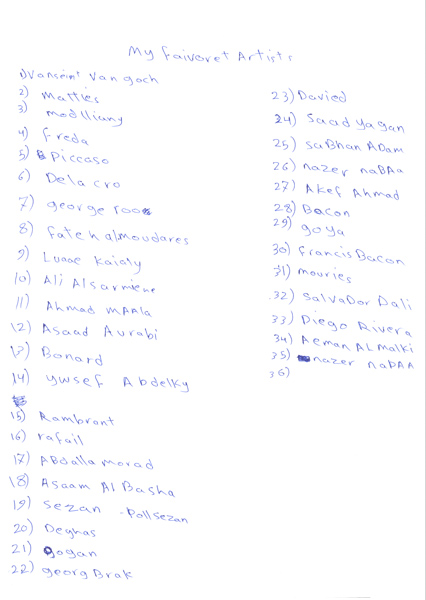 My Faivoret Artists
1) Vanseint Van goch
2) Matties
3) modlliany
4) Freda
5) Piccaso
6) Dela cro
7) george roo
8) Fateh almoudares
9) Luaae Kaialy
10) Ali Alsarmene
11) Ahmad MAAla
12) Asaad Aurabi
13) Bonard
14) ywsef Abdelky
15) Rambront
16) rafail
17) ABdalla morad
18) Asaam Al Basha
19) Sezan - Pollsezan
20) Deghas
21) gogan
22) georg Brak
23) Davied
24) Saad yagan
25) saBhan ADam
26) nazer naBAa
27) Akef Ahmad
28) Bacon
29) goya
30) Francis Bacon
31) mouries
32) SalvaDor Dali
33) Diego Rivera
34) Aeman AL malki
35) nazer naBAA
36)